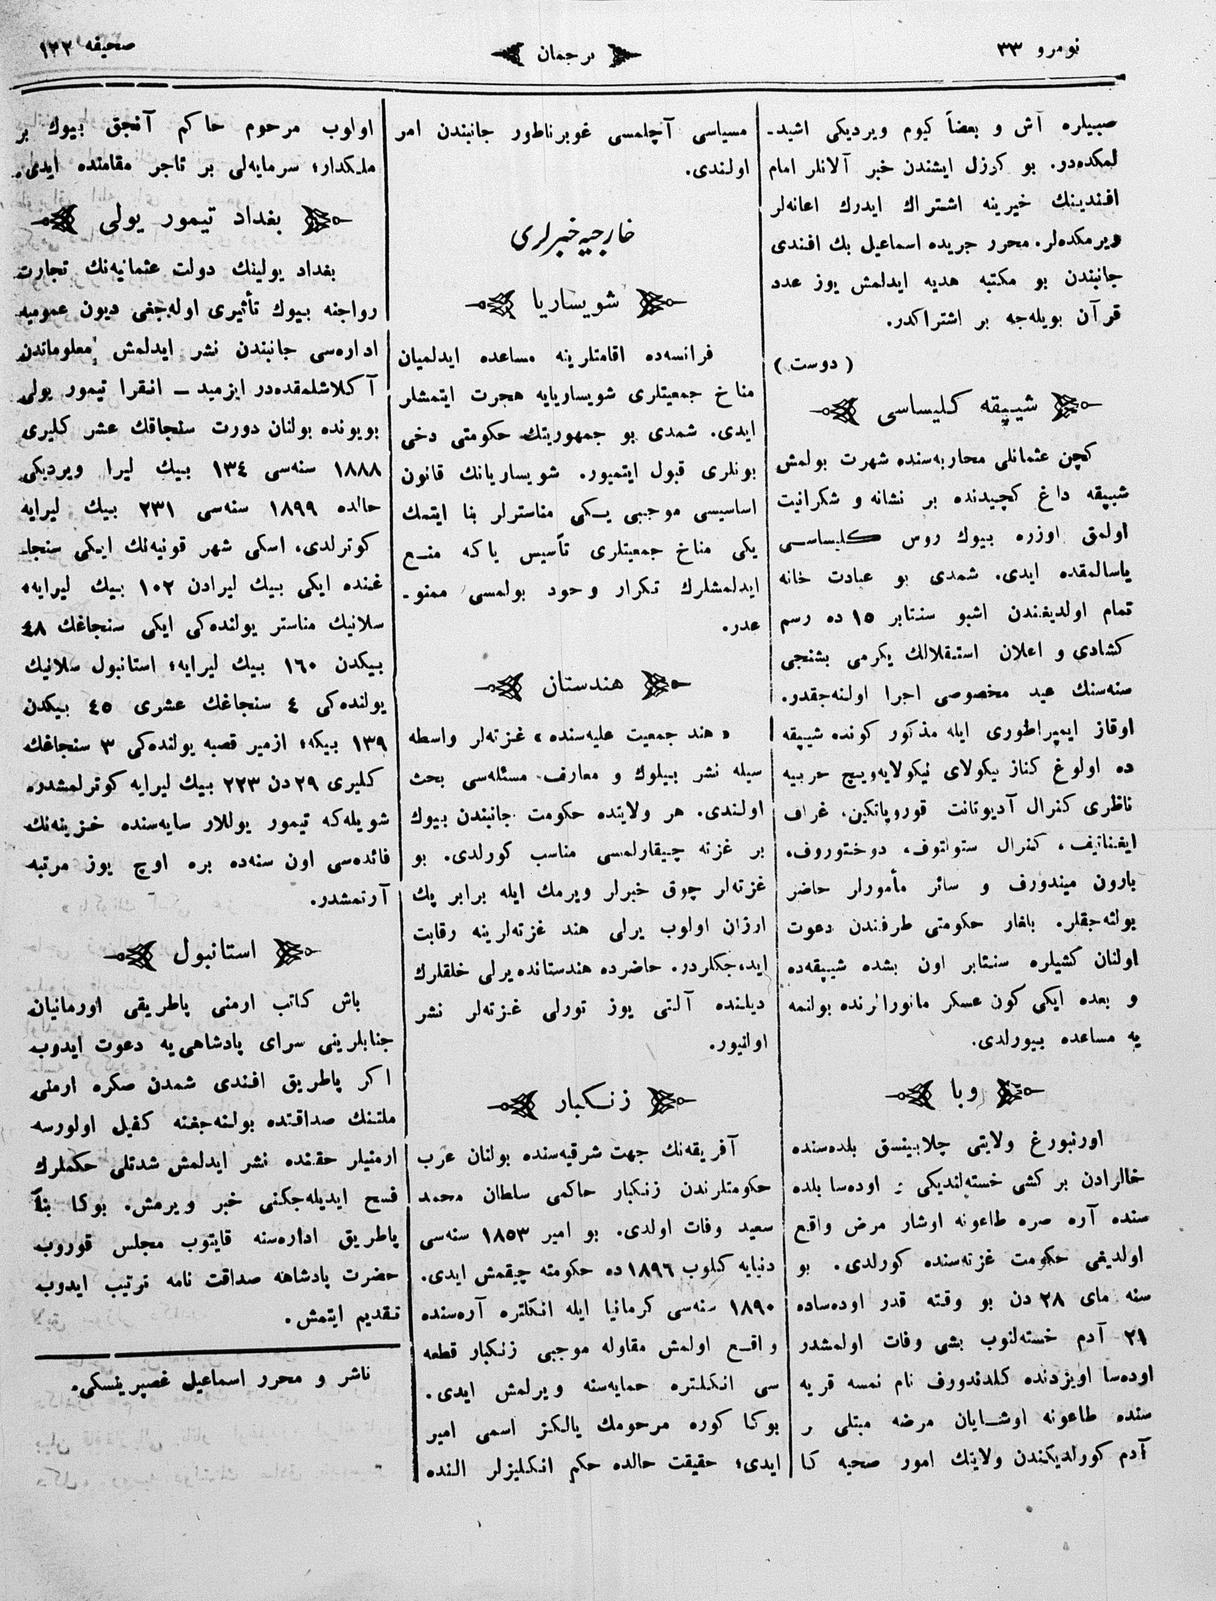 نومرو ٣٣
ترجمان
صحیفه ١٣٢
صبیلره آش و بعضاً كیوم ویردیكی اشید-
لمكده‌در. بو كوزل ایشندن خبر آلانلر امام
افندینك خیرینه اشتراك ایدرك اعانه‌لر
ویرمكده‌لر. محرر جریده اسماعیل بك افندی
جانبندن بو مكتبه هدیه ایدلمش یوز عدد
قرآن بویله‌جه بر اشتراكدر.
(دوست)
شیپقه كلیساسی
كچن عثمانلی محاربه‌سنده شهرت بولمش
شیپقه داغ كچیدنده بر نشانه و شكرانیت
اولمق اوزره بیوك روس كلیساسی
یاسالمقده ایدی. شمدی بو عبادت خانه
تمام اولدیغندن اشبو سنتابر ١٥ ده رسم
كشادی و اعلان استقلالك یكرمی بشنجی
سنه‌سنك عید مخصوصی اجرا اولنه‌جقدر.
اوقاز ایمپراطوری ایله مذكور كونده شیپقه
ده اولوغ كناز نیكولای نیكولایه‌ویچ حربیه
ناظری كنرال آدیوتانت قوروپاتكین، غراف
ایغناتیف، كنرال ستولتوف، دوختوروف،
بارون میندورف و سائر مأمورلر حاضر
بولنه‌جقلر. بلغار حكومتی طرفندن دعوت
اولنان كشیلره سنتابر اون بشده شیپقه‌ده
و بعده ایكی كون عسكر مانورالرنده بولنمه
یه مساعده بیورلدی.
وبا
اورنبورغ ولایتی چلابینسق بلده‌سنده
خالرادن بر كشی خسته‌لندیكی ; اوده‌سا بلده
سنده آره صره طاعونه اوشار مرض واقع
اولدیغی حكومت غزته‌سنده كورلدی. بو
سنه مای ٢٨ دن بو وقته قدر اوده‌ساده
٢١ آدم خسته‌لنوب بشی وفات اولمشدر
اوده‌سا اویزدنده كلدندورف نام نمسه قریه
سنده طاعونه اوشایان مرضه مبتلی ر
آدم كورلدیكندن ولایتك امور صحیه كا
مسیاسی آچلمسی غوبرناطور جانبندن امر
اولندی.
خارجیه خبرلری
شویساریا
فرانسه‌ده اقامتلرینه مساعده ایدلمیان
مناخ جمعیتلری شویساریایه هجرت ایتمشلر
ایدی. شمدی بو جمهوریتك حكومتی دخی
بونلری قبول ایتمیور. شویساریانك قانون
اساسیسی موجبی یكی مناسترلر بنا ایتمك
یكی مناخ جمعیتلری تأسیس یاكه منع
ایدلمشلرك تكرار وجود بولمسی ممنو-
عدر.
هندستان
«هند جمعیت علیه‌سنده» غزته‌لر واسطه
سیله نشر بیلوك و معارف مسئله‌سی بحث
اولندی. هر ولایتده حكومت جانبندن بیوك
بر غزته چیقارلمسی مناسب كورلدی. بو
غزته‌لر چوق خبرلر ویرمك ایله برابر پك
ارزان اولوب یرلی هند غزته‌لرینه رقابت
ایده‌جكلردر. حاضرده هندستانده یرلی خلقلرك
دیلنده آلتی یوز تورلی غزته‌لر نشر
اولنیور.
زنكبار
آفریقه‌نك جهت شرقیه‌سنده بولنان عرب
حكومتلرندن زنكبار حاكمی سلطان محمد
سعید وفات اولدی. بو امیر ١٨٥٣ سنه‌سی
دنیایه كلوب ١٨٩٦ ده حكومته چیقمش ایدی.
١٨٩٠ سنه‌سی كرمانیا ایله انكلتره آره‌سنده
واقع اولمش مقاوله موجبی زنكبار قطعه
سی انكلتره حمایه‌سنه ویرلمش ایدی.
بوكا كوره مرحومك یالكز اسمی امیر
ایدی؛ حقیقت حالده حكم انكلیزلر النده
اولوب مرحوم حاكم آنجق بیوك بر
ملكدار؛ سرمایه‌لی بر تاجر مقامنده ایدی.
بغداد تیمور یولی
بغداد یولینك دولت عثمانیه‌نك تجارت
رواجنه بیوك تأثیری اوله‌جغی دیون عمومیه
اداره‌سی جانبندن نشر ایدلمش معلوماتدن
آكلاشلمقده‌در ایزمید – انقرا تیمور یولی
بویونده بولنان دورت سنجاقك عشر كلیری
١٨٨٨ سنه‌سی ١٣٤ بیك لیرا ویردیكی
حالده ١٨٩٩ سنه‌سی ٢٣١ بیك لیرایه
كوترلدی، اسكی شهر قونیه‌نك ایكی سنجا-
غنده ایكی بیك لیرادن ١٠٢ بیك لیرایه؛
سلانیك مناستر یولنده‌كی ایكی سنجاغك ٤٨
بیكدن ١٦٠ بیك لیرایه؛ استانبول سلانیك
یولنده‌كی ٤ سنجاغك عشری ٤٥ بیكدن
١٣٩ بیكه؛ ازمیر قصبه یولنده‌كی ٣ سنجاغك
كلیری ٢٩ دن ٢٢٣ بیك لیرایه كوترلمشدر.
شویله‌كه تیمور یوللار سایه‌سنده خزینه‌نك
فائده‌سی اون سنه‌ده بره اوچ یوز مرتبه
آرتمشدر.
استانبول
باش كاتب ارمنی پاطریقی اورمانیان
جنابلرینی سرای پادشاهی‌یه دعوت ایدوب
اكر پاطریق افندی شمدن صكره ارمنی
ملتنك صداقتده بولنه‌جغنه كفیل اولورسه
ارمنیلر حقنده نشر ایدلمش شدتلی حكملرك
فسخ ایدیله‌جكنی خبر ویرمش. بوكا بناً
پاطریق اداره‌سنه قایتوب مجلس قوروب
حضرت پادشاهه صداقت نامه ترتیب ایدوب
تقدیم ایتمش.
ناشر و محرر اسماعیل غصپرینسكی.